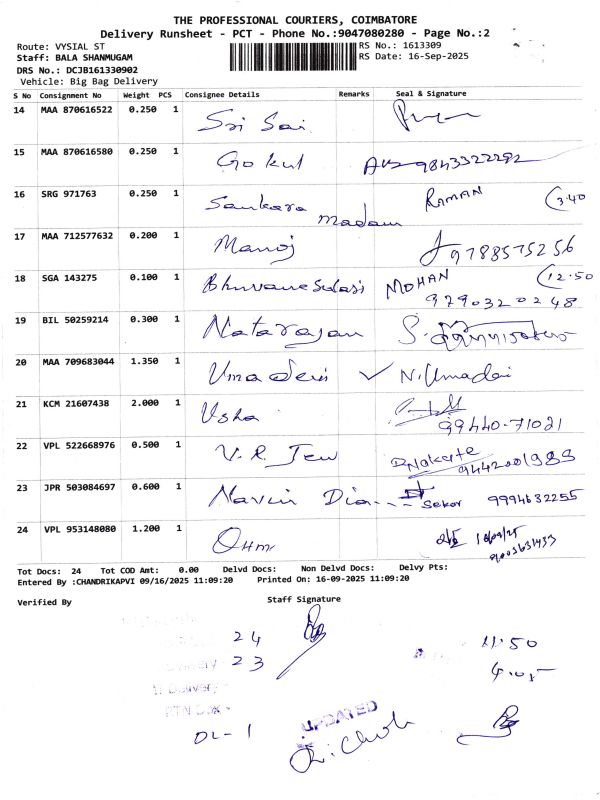 THE PROFESSIONAL COURIERS, COIMBATORE
Delivery Runsheet - PCT - Phone No.:9047080280 - Page No.:2
Route: VYSIAL ST RS No.: 1613309
Staff: BALA SHANMUGAM RS Date: 16-Sep-2025
DRS No.: DCJB161330902
Vehicle: Big Bag Delivery
S No Consignment No Weight PCS Consignee Details Remarks Seal & Signature
14 MAA 870616522 0.250 1 Sri Sai
15 MAA 870616580 0.250 1 Gokul 9843322292
16 SRG 971763 0.250 1 Sankara madam RAMAN 3.40
17 MAA 712577632 0.200 1 Manoj 9788575256
18 SGA 143275 0.100 1 Bhuvaneswari MOHAN 12.50
9790320248
19 BIL 50259214 0.300 1 Natarajan
20 MAA 709683044 1.350 1 Umadevi ✓ N. Umadevi
21 KCM 21607438 2.000 1 Usha
99440-71021
22 VPL 522668976 0.500 1 V.R. Jew
9442001989
23 JPR 503084697 0.600 1 Navin Dia--- Sekar 9994632255
24 VPL 953148080 1.200 1 OHM 16/09/25
Tot Docs: 24 Tot COD Amt: 0.00 Delvd Docs: Non Delvd Docs: Delvy Pts:
Entered By :CHANDRIKAPVI 09/16/2025 11:09:20 Printed On: 16-09-2025 11:09:20
Verified By Staff Signature
24 11.50
23 4.05
UPDATED
DL-1